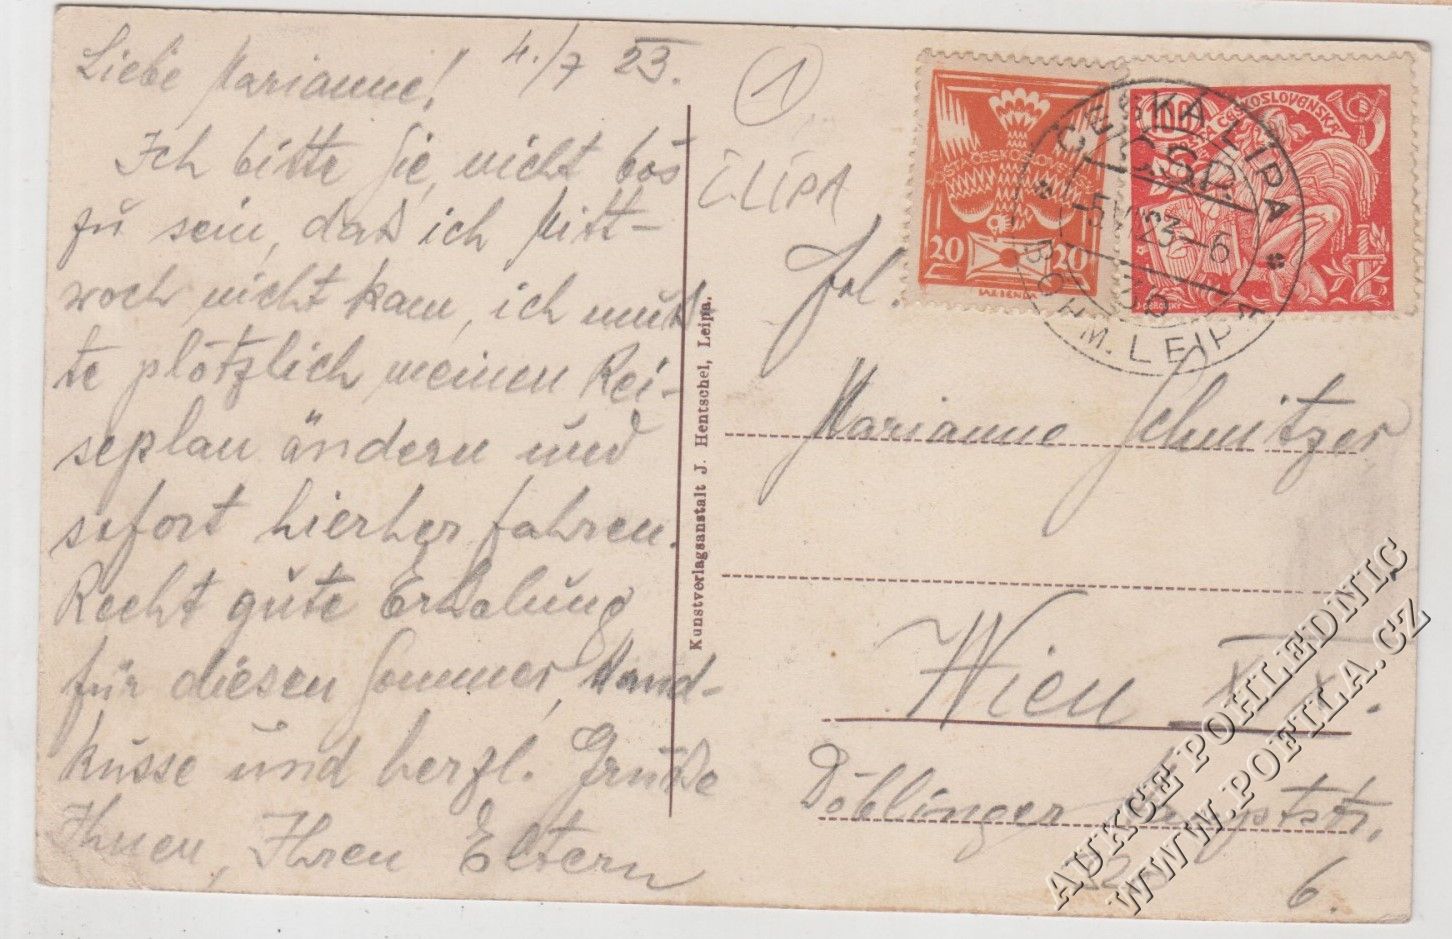 4./7 23.
Liebe Marianne!
Ich bitte Sie, nicht bös
zu sein, daß ich Mitt-
woch nicht kam, ich muß-
te plötzlich meinen Rei-
seplan ändern und
sofort hierher fahren.
Recht gute Erholung
für diesen Sommer, Hand-
küsse und herzl. Grüße
Ihnen, Ihren Eltern
1
Č. LÍPA
Kunstverlagsanstalt J. Hentschel, Leipa.
20 20
100
ČESKOSLOVENSKÁ
ČESKÁ LÍPA
ČSP
-5.VII.23-6
3b
BÖHM. LEIPA
Frl.
Marianne Schnitzer
Wien XIX.
Döblinger Hauptstr.
6.
AUKCE POHLEDNIC
WWW.POFILA.CZ